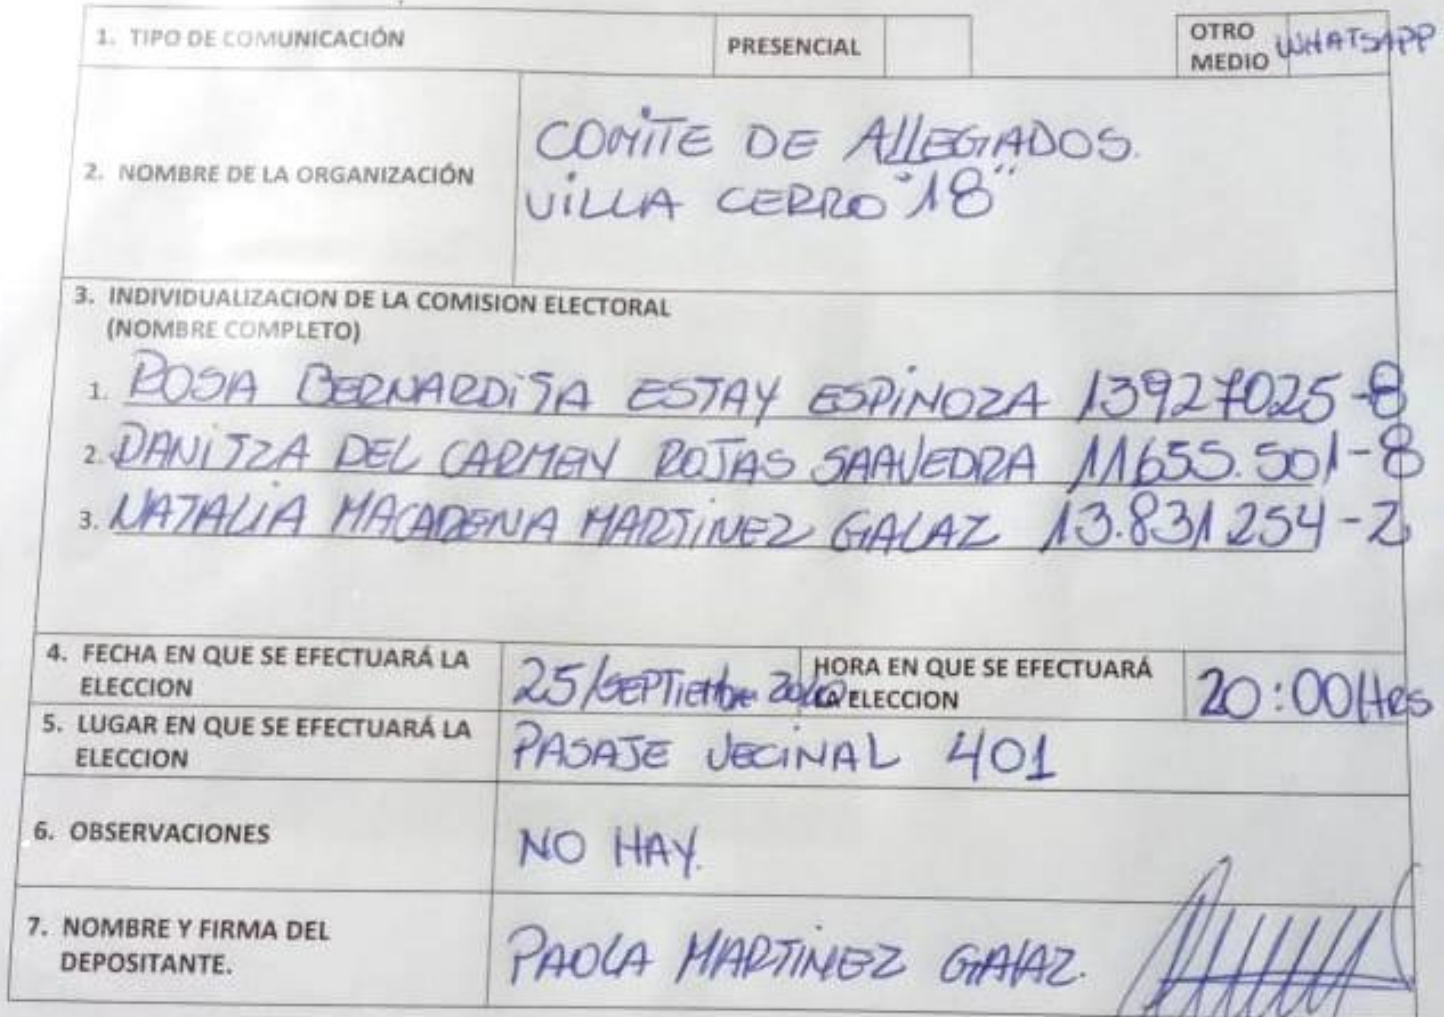 1. TIPO DE COMUNICACIÓN PRESENCIAL OTRO MEDIO WHATSAPP
2. NOMBRE DE LA ORGANIZACIÓN
COMITE DE AllEGADOS.
VILLA CERRO "18"
3. INDIVIDUALIZACION DE LA COMISION ELECTORAL
(NOMBRE COMPLETO)
1. ROSA BERNARDITA ESTAY ESPINOZA 13927025-8
2. DANITZA DEL CARMEN ROJAS SAAVEDRA 11655.501-8
3. NATALIA MACARENA MARTINEZ GALAZ 13.831.254-2
4. FECHA EN QUE SE EFECTUARÁ LA
ELECCION
25/SEPTIEMBRE
HORA EN QUE SE EFECTUARÁ
LA ELECCION
20:00Hrs
5. LUGAR EN QUE SE EFECTUARÁ LA
ELECCION
PASAJE VECINAL 401
6. OBSERVACIONES
NO HAY.
7. NOMBRE Y FIRMA DEL
DEPOSITANTE.
PAOLA MARTINEZ GALAZ.